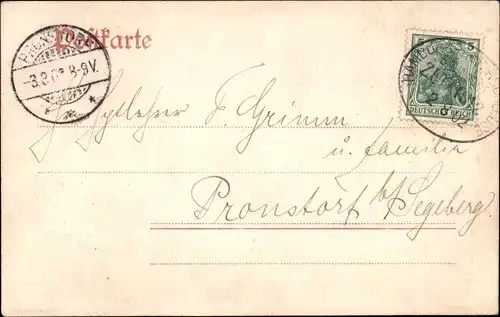 Postkarte
PRONSTORF
-3.3.03. 8-9V.
5 5
DEUTSCHES REICH
F. Grimm
u. Familie
Pronstorf b/Segeberg.